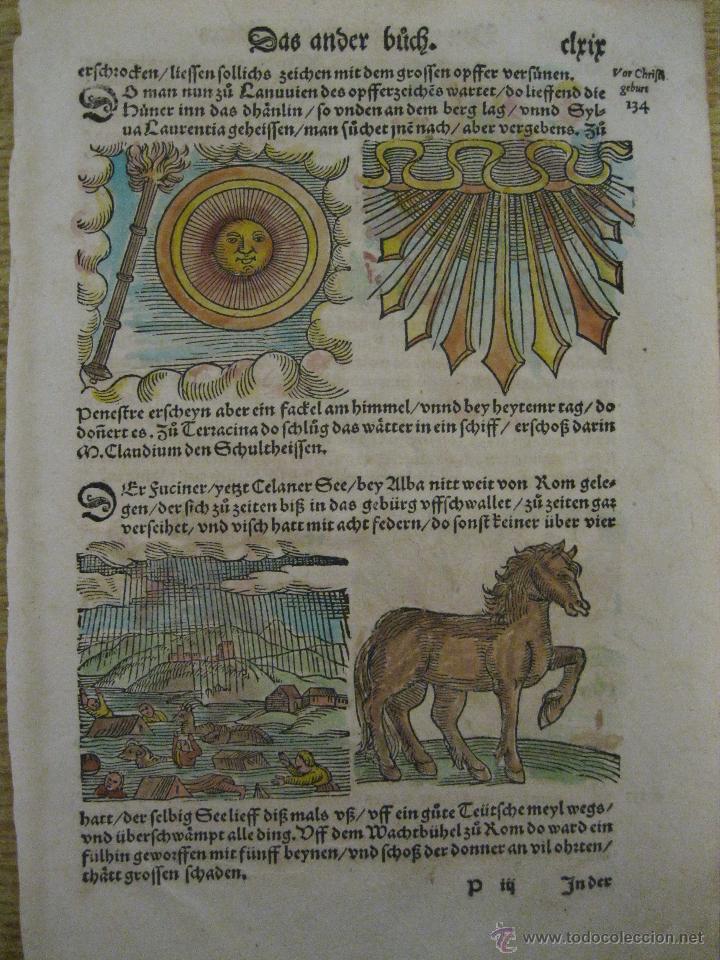 Das ander bůch. clxix
erschrocken/liessen sollichs zeichen mit dem grossen opffer versünen.
Vor Christi
geburt
134
DO man nun zů Lanuuien des opfferzeichēs wartet/do lieffend die
Hüner inn das dhänlin/so vnden an dem berg lag/vnnd Syl-
ua Laurentia geheissen/man sůchet jnē nach/aber vergebens. Zů
Penestre erscheyn aber ein fackel am himmel/vnnd bey heytemr tag/do
doñert es. Zů Terracina do schlůg das wätter in ein schiff/erschoß darin
M. Claudium den Schultheissen.
DEr Fuciner/yetzt Celaner See/bey Alba nitt weit von Rom gele-
gen/der sich zů zeiten biß in das gebürg vffschwallet/zů zeiten gar
verseihet/vnd visch hatt mit acht federn/do sonst keiner über vier
hatt/der selbig See lieff diß mals vß/vff ein gůte Teütsche meyl wegs/
vnd überschwämpt alle ding. Vff dem Wachtbühel zů Rom do ward ein
fülhin geworffen mit fünff beynen/vnd schoß der donner an vil ohrten/
thätt grossen schaden.
P iij In der
© todocoleccion.net